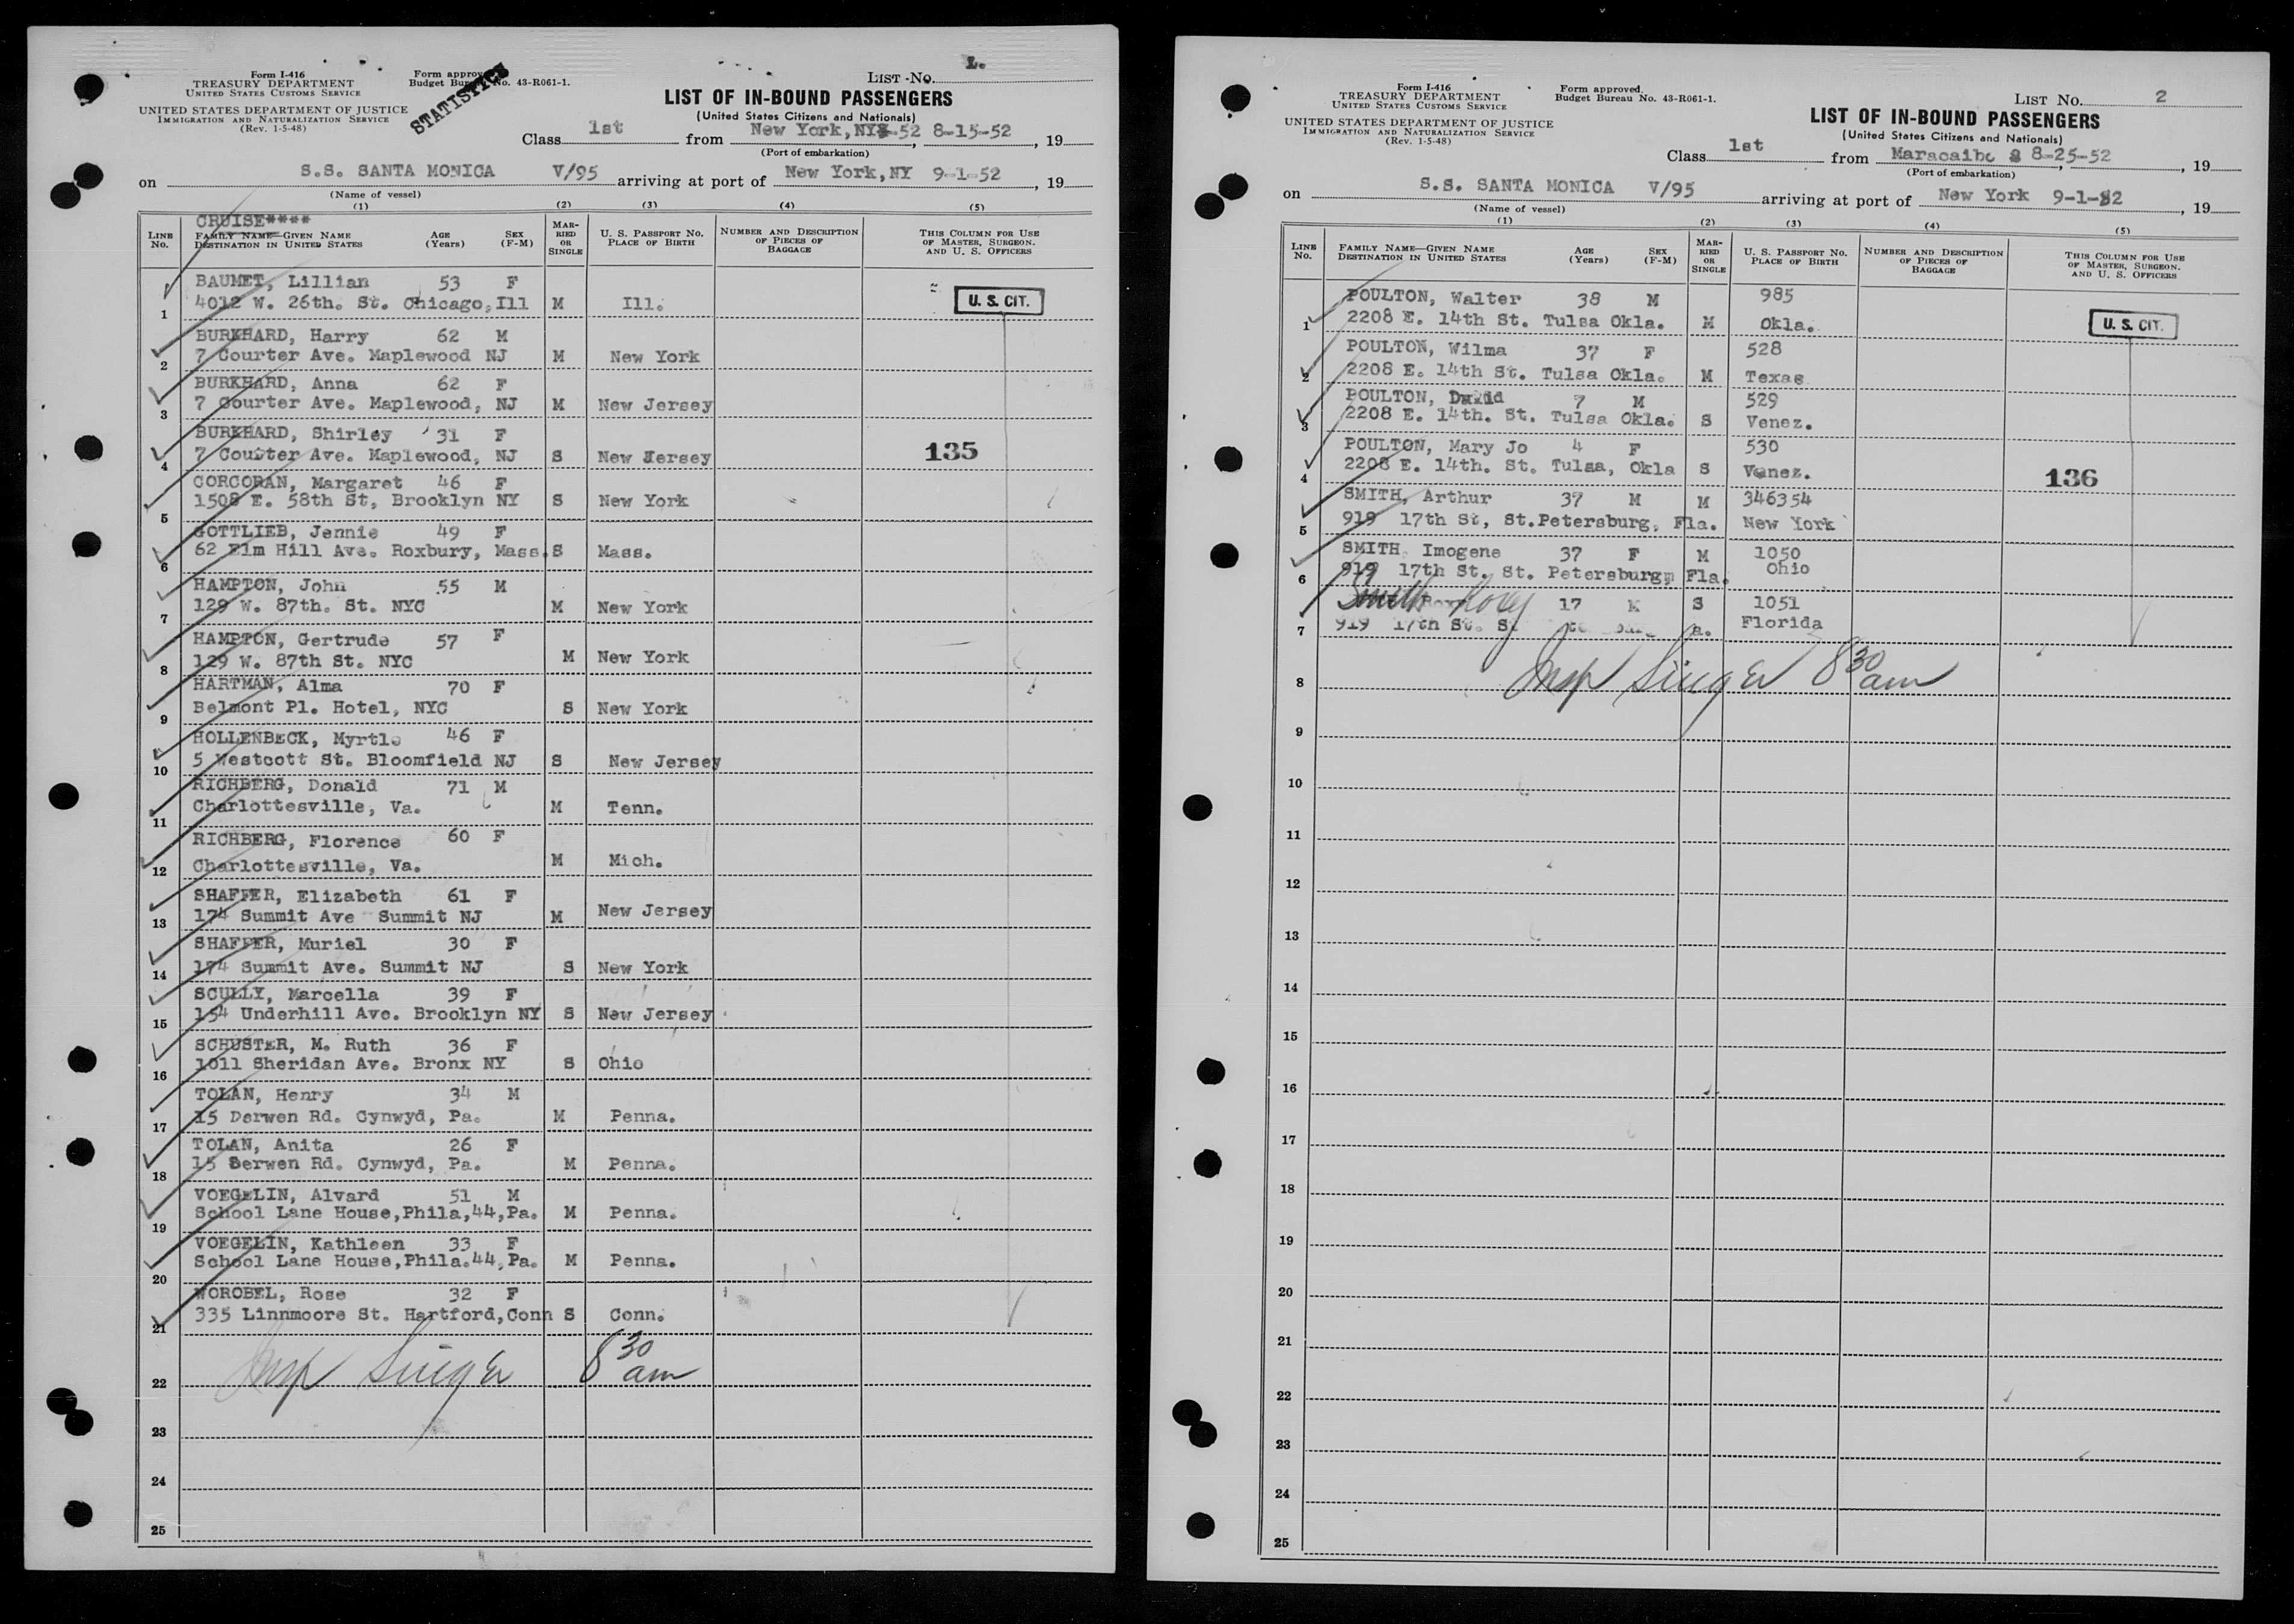 Form I-416
TREASURY DEPARTMENT
UNITED STATES CUSTOMS SERVICE
UNITED STATES DEPARTMENT OF JUSTICE
IMMIGRATION AND NATURALIZATION SERVICE
(Rev. 1-5-48)
Form approved
Budget Bureau No. 43-R061-1.
STATISTICS
LIST NO. 1.
LIST OF IN-BOUND PASSENGERS
(United States Citizens and Nationals)
Class 1st from New York, NY 8-15-52, 19
(Port of embarkation)
on S.S. SANTA MONICA V/95 arriving at port of New York, NY 9-1-52, 19
(Name of vessel)
(1) (2) (3) (4) (5)
CRUISE****
LINE NO. FAMILY NAME—GIVEN NAME DESTINATION IN UNITED STATES AGE (Years) SEX (F-M) MARRIED OR SINGLE U. S. PASSPORT NO. PLACE OF BIRTH NUMBER AND DESCRIPTION OF PIECES OF BAGGAGE THIS COLUMN FOR USE OF MASTER, SURGEON, AND U. S. OFFICERS
BAUMET, Lillian 53 F
1 4012 W. 26th. St. Chicago, Ill M Ill. U. S. CIT.
BURKHARD, Harry 62 M
2 7 Courter Ave. Maplewood NJ M New York
BURKHARD, Anna 62 F
3 7 Courter Ave. Maplewood, NJ M New Jersey
BURKHARD, Shirley 31 F
4 7 Courter Ave. Maplewood, NJ S New Jersey 135
CORCORAN, Margaret 46 F
5 1508 E. 58th St, Brooklyn NY S New York
GOTTLIEB, Jennie 49 F
6 62 Elm Hill Ave. Roxbury, Mass. S Mass.
HAMPTON, John 55 M
7 129 W. 87th. St. NYC M New York
HAMPTON, Gertrude 57 F
8 129 W. 87th St. NYC M New York
HARTMAN, Alma 70 F
9 Belmont Pl. Hotel, NYC S New York
HOLLENBECK, Myrtle 46 F
10 5 Westcott St. Bloomfield NJ S New Jersey
RICHBERG, Donald 71 M
11 Charlottesville, Va. M Tenn.
RICHBERG, Florence 60 F
12 Charlottesville, Va. M Mich.
SHAFFER, Elizabeth 61 F
13 174 Summit Ave Summit NJ M New Jersey
SHAFFER, Muriel 30 F
14 174 Summit Ave. Summit NJ S New York
SCULLY, Marcella 39 F
15 154 Underhill Ave. Brooklyn NY S New Jersey
SCHUSTER, M. Ruth 36 F
16 1011 Sheridan Ave. Bronx NY S Ohio
TOLAN, Henry 34 M
17 15 Derwen Rd. Cynwyd, Pa. M Penna.
TOLAN, Anita 26 F
18 15 Derwen Rd. Cynwyd, Pa. M Penna.
VOEGELIN, Alvard 51 M
19 School Lane House,Phila,44,Pa. M Penna.
VOEGELIN, Kathleen 33 F
20 School Lane House,Phila.44,Pa. M Penna.
WOROBEL, Rose 32 F
21 335 Linnmoore St. Hartford,Conn S Conn.
22 Insp Singer 8 30 am
23
24
25
Form I-416
TREASURY DEPARTMENT
UNITED STATES CUSTOMS SERVICE
UNITED STATES DEPARTMENT OF JUSTICE
IMMIGRATION AND NATURALIZATION SERVICE
(Rev. 1-5-48)
Form approved.
Budget Bureau No. 43-R061-1.
LIST NO. 2
LIST OF IN-BOUND PASSENGERS
(United States Citizens and Nationals)
Class 1st from Maracaibo 8-25-52, 19
(Port of embarkation)
on S.S. SANTA MONICA V/95 arriving at port of New York 9-1-52, 19
(Name of vessel)
(1) (2) (3) (4) (5)
LINE NO. FAMILY NAME—GIVEN NAME DESTINATION IN UNITED STATES AGE (Years) SEX (F-M) MARRIED OR SINGLE U. S. PASSPORT NO. PLACE OF BIRTH NUMBER AND DESCRIPTION OF PIECES OF BAGGAGE THIS COLUMN FOR USE OF MASTER, SURGEON, AND U. S. OFFICERS
POULTON, Walter 38 M 985
1 2208 E. 14th St. Tulsa Okla. M Okla. U. S. CIT.
POULTON, Wilma 37 F 528
2 2208 E. 14th St. Tulsa Okla. M Texas
POULTON, David 7 M 529
3 2208 E. 14th. St. Tulsa Okla. S Venez.
POULTON, Mary Jo 4 F 530
4 2208 E. 14th. St. Tulsa, Okla S Venez. 136
SMITH, Arthur 37 M M 346354
5 919 17th St, St.Petersburg, Fla. New York
SMITH Imogene 37 F M 1050
6 919 17th St. St. Petersburg, Fla. Ohio
Smith 17 S 1051
7 919 17th St. Florida
8 Insp Singer 8 30 am
9
10
11
12
13
14
15
16
17
18
19
20
21
22
23
24
25